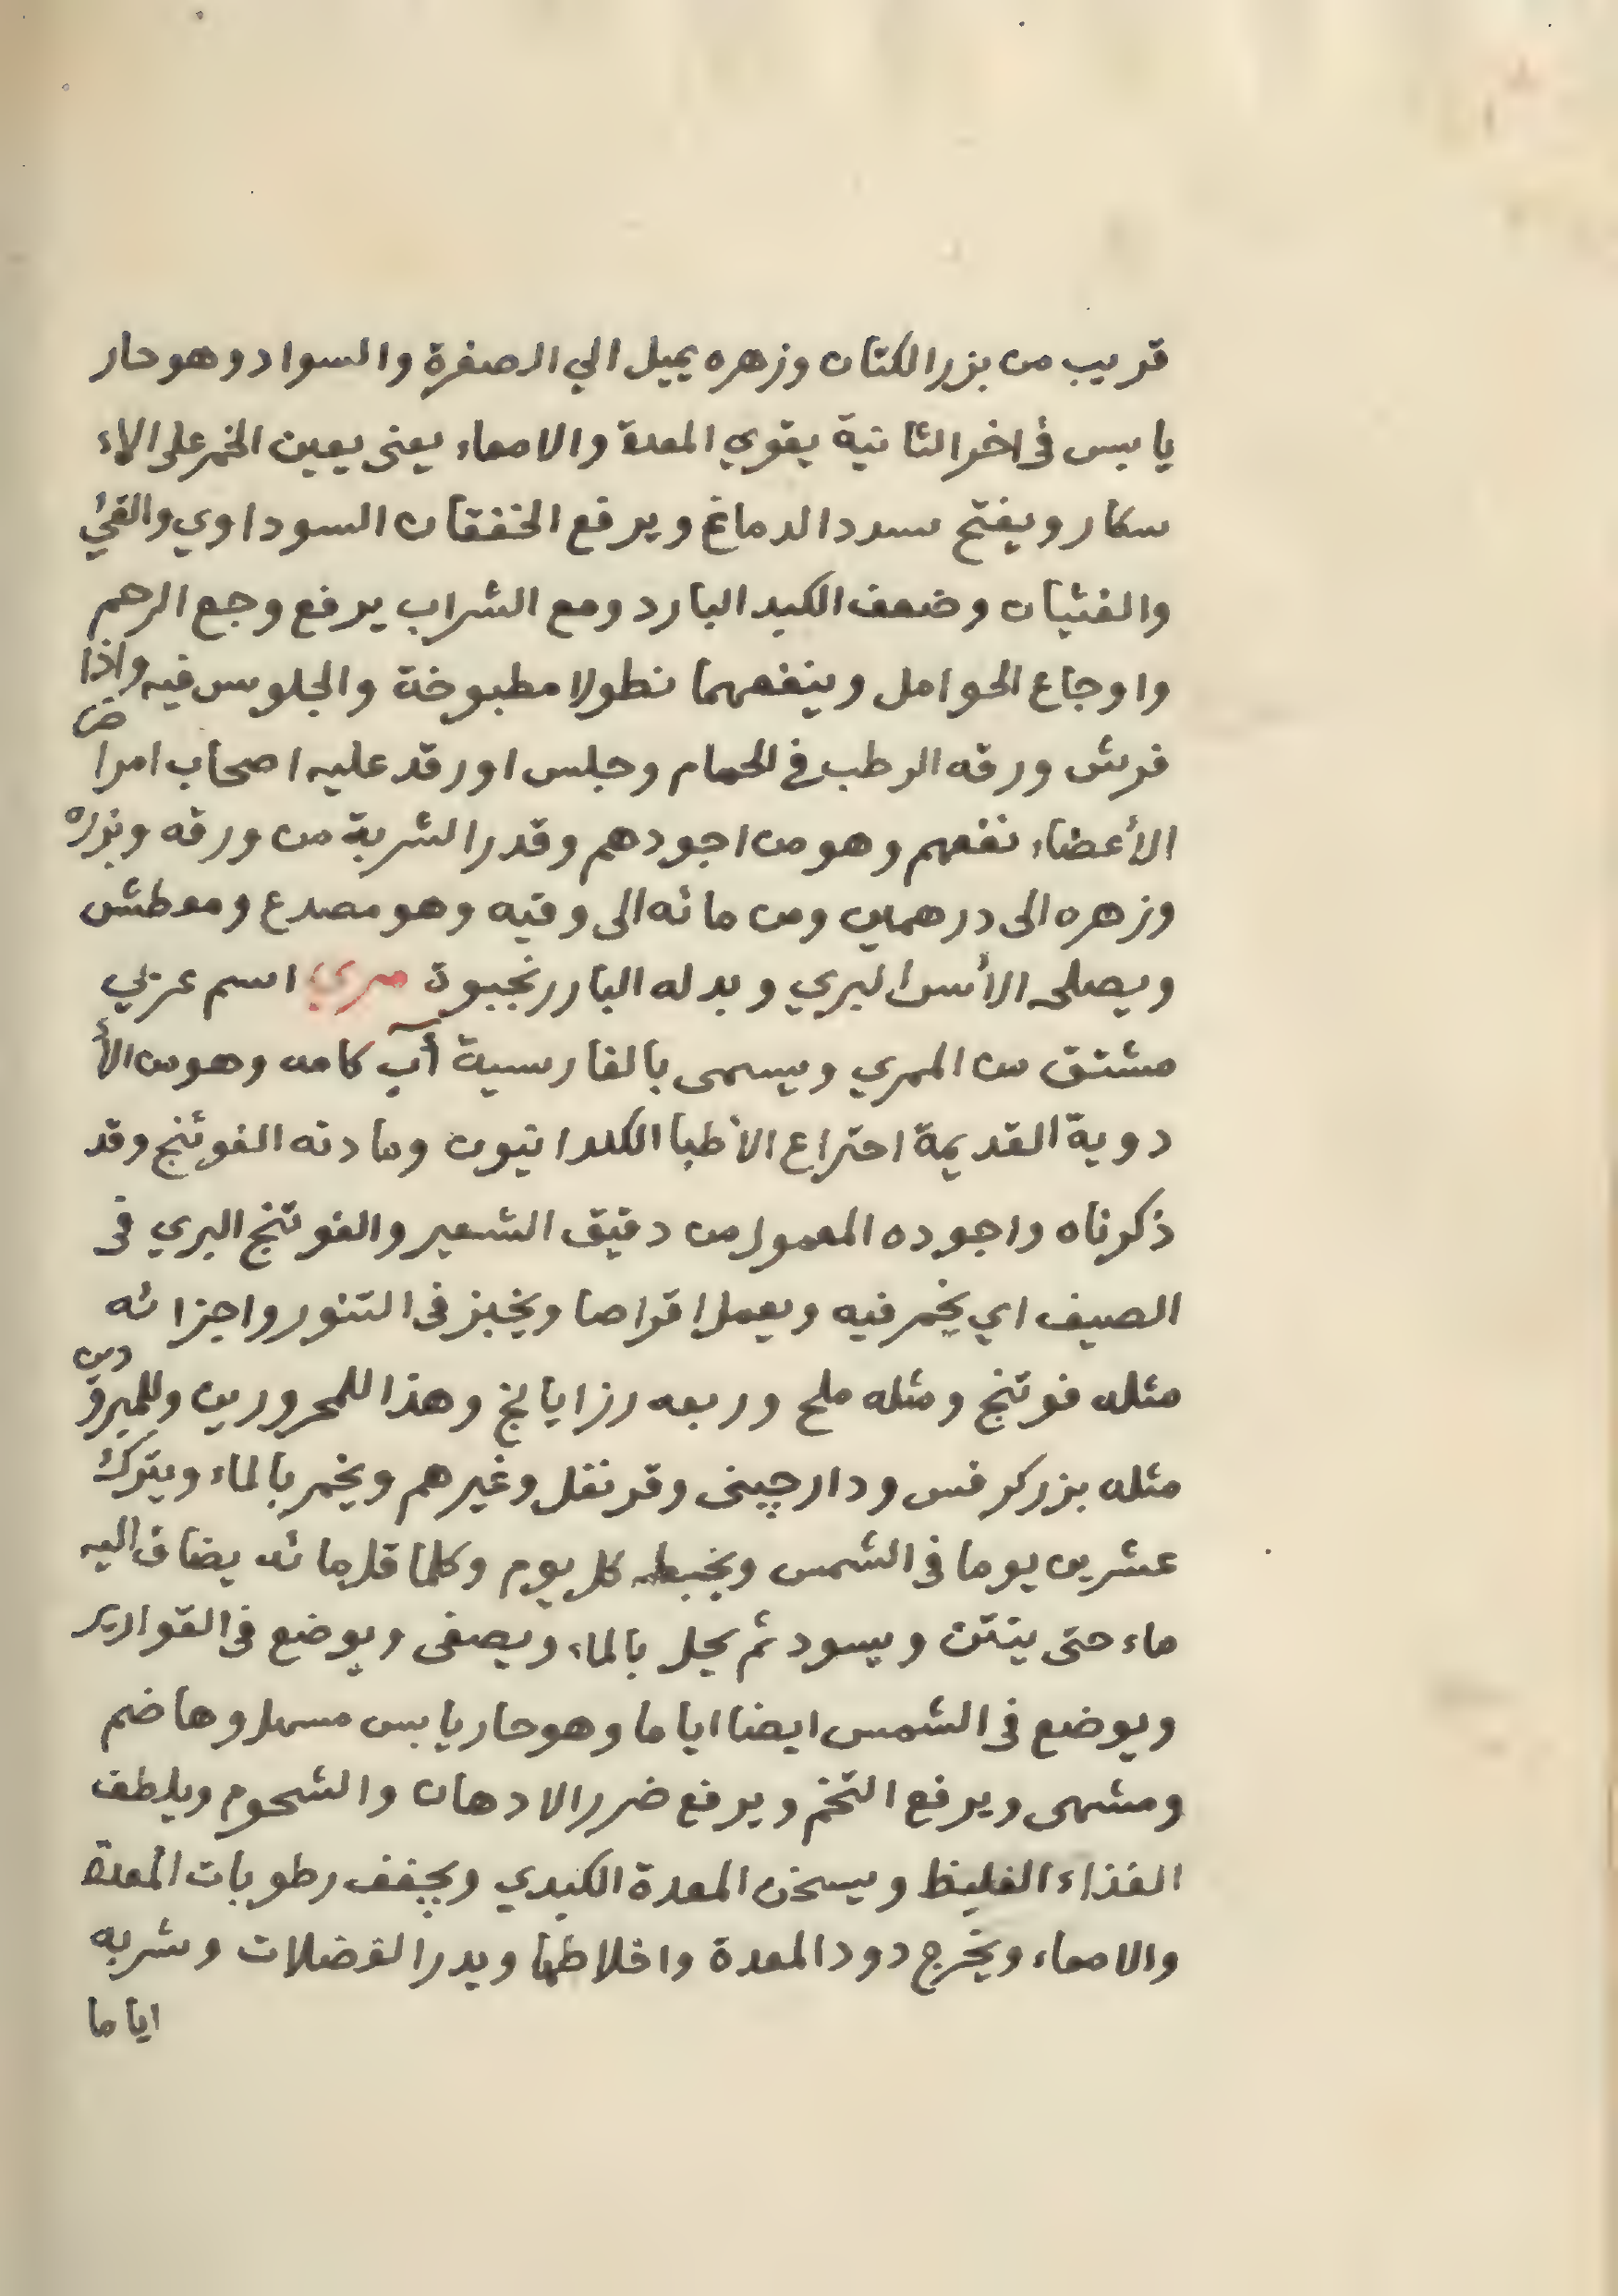 قريب من بزر الكتان وزهره يميل الي الصفرة والسواد وهو حار
يابس في اخر الثانية يقوي المعدة والامعاء يعنى يعين الخمر على الاء
سكار ويفتح سدد الدماغ ويرفع الخفقان السوداوي والقئ
والغثيان وضعف الكبد البارد ومع الشراب يرفع وجع الرحم
واوجاع الحوامل وينفعهما نطولا مطبوخة والجلوس فيه واذا
فرش ورقه الرطب في الحمام وجلس اورقد عليه اصحاب امراض
الأعضاء نفعهم وهو من اجودهم وقدر الشربة من ورقه وبزره
وزهره الى درهمين ومن مائه الى وقيه وهو مصدع ومعطش
ويصلحه الأس البري وبدله البادرنجبوة مري اسم عربي
مشتق من المري ويسمى بالفارسية آب كامه وهو من الأ
دوية القديمة اختراع الأطبا الكلدانيون ومادته الفوتنج وقد
ذكرناه واجوده المعمول من دقيق الشعير والفوتنج البري في
الصيف اي يخمر فيه ويعمل اقراصا ويخبز في التنور واجزائه
مثله فوتنج ومثله ملح وربعه رزايانج وهذا للمحرورين وللمبرودين
مثله بزركرفس ودارچينى وقرنفل وغيرهم ويخمر بالماء ويترك
عشرين يوما في الشمس ويخبطه كل يوم وكلما قل مائه يضاف اليه
ماء حتى ينتن ويسود ثم يحل بالماء ويصفى ويوضع في القوارير
ويوضع في الشمس ايضا اياما وهو حار يابس مسهل وهاضم
ومشهى ويرفع التخم ويرفع ضرر الادهان والشحوم ويلطف
الغذاء الغليظ ويسخن المعدة الكبدي ويجفف رطوبات المعدة
والامعاء ويخرج دود المعدة واخلاطها ويدر الفضلات وشربه
اياما